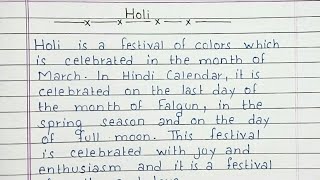 Holi
Holi is a festival of colors which
is celebrated in the month of
March. In Hindi Calendar, it is
celebrated on the last day of
the month of Falgun, in the
spring season and on the day
of full moon. This festival
is celebrated with joy and
enthusiasm and it is a festival